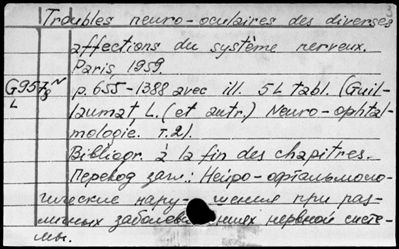 Troubles neuro-oculaires des diverses
affections du système nerveux.
Paris, 1959.
p. 655-1388 avec ill. 54 tabl. (Guil-
laumat, L. (et autr.) Neuro-ophtal-
mologie. T.2).
Bibliogr. à la fin des chapitres.
Перевод заг.: Нейро-офтальмоло-
гические нару- шения при раз-
личных заболева- ниях нервной систе-
мы.